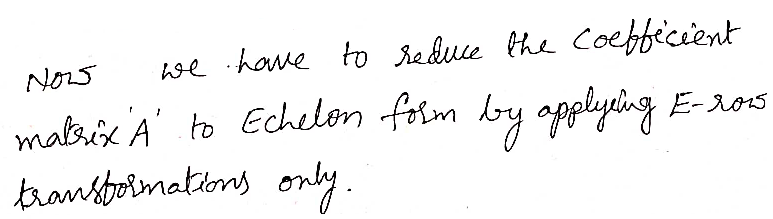 Now we have to reduce the Coefficient
matrix 'A' to Echelon form by applying E-row
transformations only.